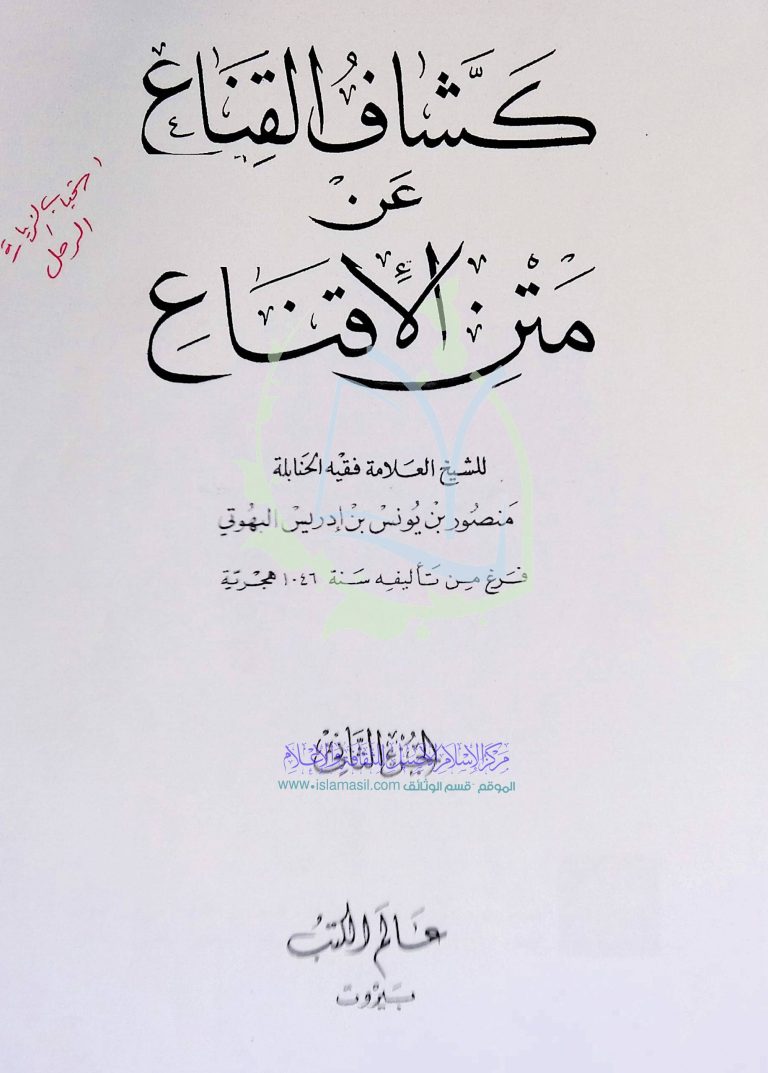 كَشَّافُ القِنَاعِ
عَنْ
مَتْنِ الإِقْنَاعِ
للشيخ العلامة فقيه الحنابلة
منصور بن يونس بن إدريس البهوتي
فرغ من تأليفه سنة ١٠٤٦ هجرية
الجزء الثاني
مركز الإسلام الأصيل للثقافة والإعلام
الموقع - قسم الوثائق www.islamasil.com
عالم الكتب
بيروت
الرحل